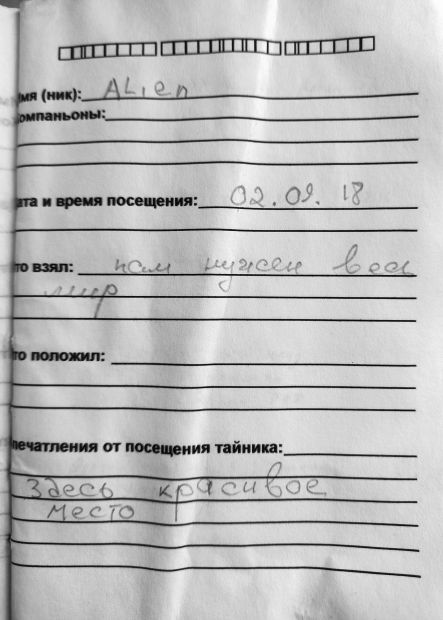 мя (ник): ALien
омпаньоны:
ата и время посещения: 02.09.18
то взял: нам нужен весь
мир
то положил:
печатления от посещения тайника:
Здесь красивое
место